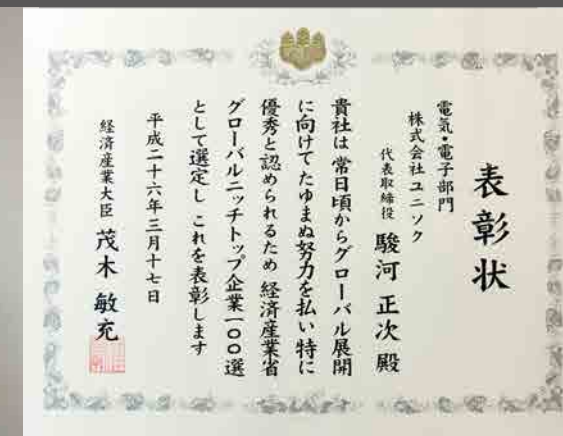 表彰状
電気・電子部門
株式会社ユニソク
代表取締役 駿河 正次 殿
貴社は 常日頃からグローバル展開
に向けてたゆまぬ努力を払い 特に
優秀と認められるため 経済産業省
グローバルニッチトップ企業一〇〇選
として選定し これを表彰します
平成二十六年三月十七日
経済産業大臣 茂木 敏充